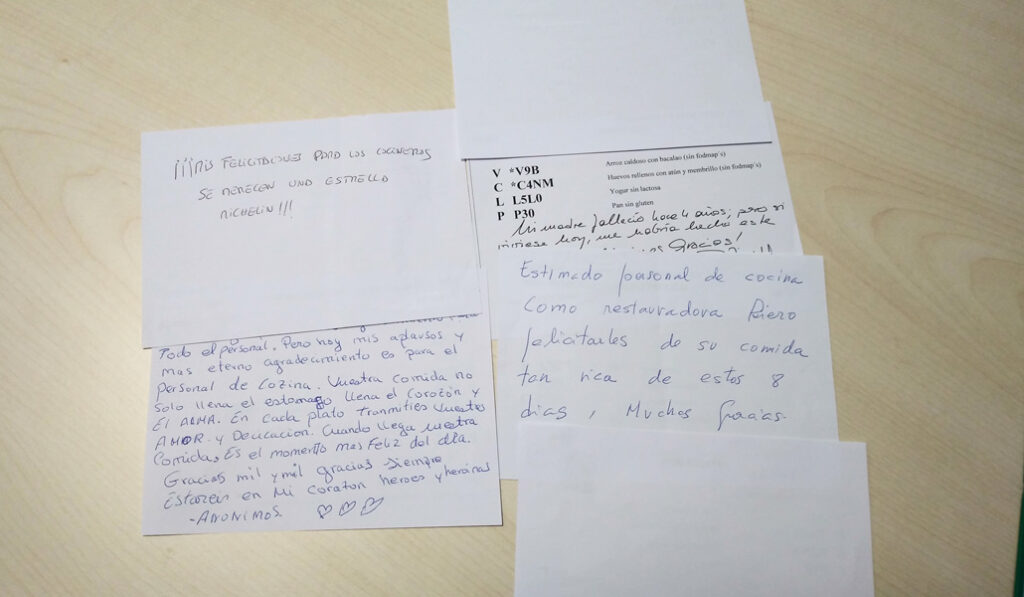 ¡¡¡MIS FELICITACIONES PARA LOS COCINEROS
SE MERECEN UNA ESTRELLA
MICHELIN!!!
Todo el personal. Pero hoy mis aplausos y
mas eterno agradecimiento es para el
Personal de Cozina. Vuestra Comida no
Solo llena el estomago llena el Corazón y
El ALMA. En Cada plato Tranmitíes Vuestro
AMOR y Deucacion. Cuando llega vuestra
Comida, Es el momento mas Feliz del día.
Gracias mil y mil gracias Siempre
Estareis en Mi Corazon heroes y heroinas
-ANONIMOS
V *V9B Arroz caldoso con bacalao (sin fodmap´s)
C *C4NM Huevos rellenos con atún y membrillo (sin fodmap´s)
L L5L0 Yogur sin lactosa
P P30 Pan sin gluten
Mi madre falleció hace 4 años, pero si
viviese hoy, me habría hecho este
Gracias!
Estimado personal de cocina
Como restauradora Kiero
felicitarles de su comida
tan rica de estos 8
dias, Muchas Gracias.